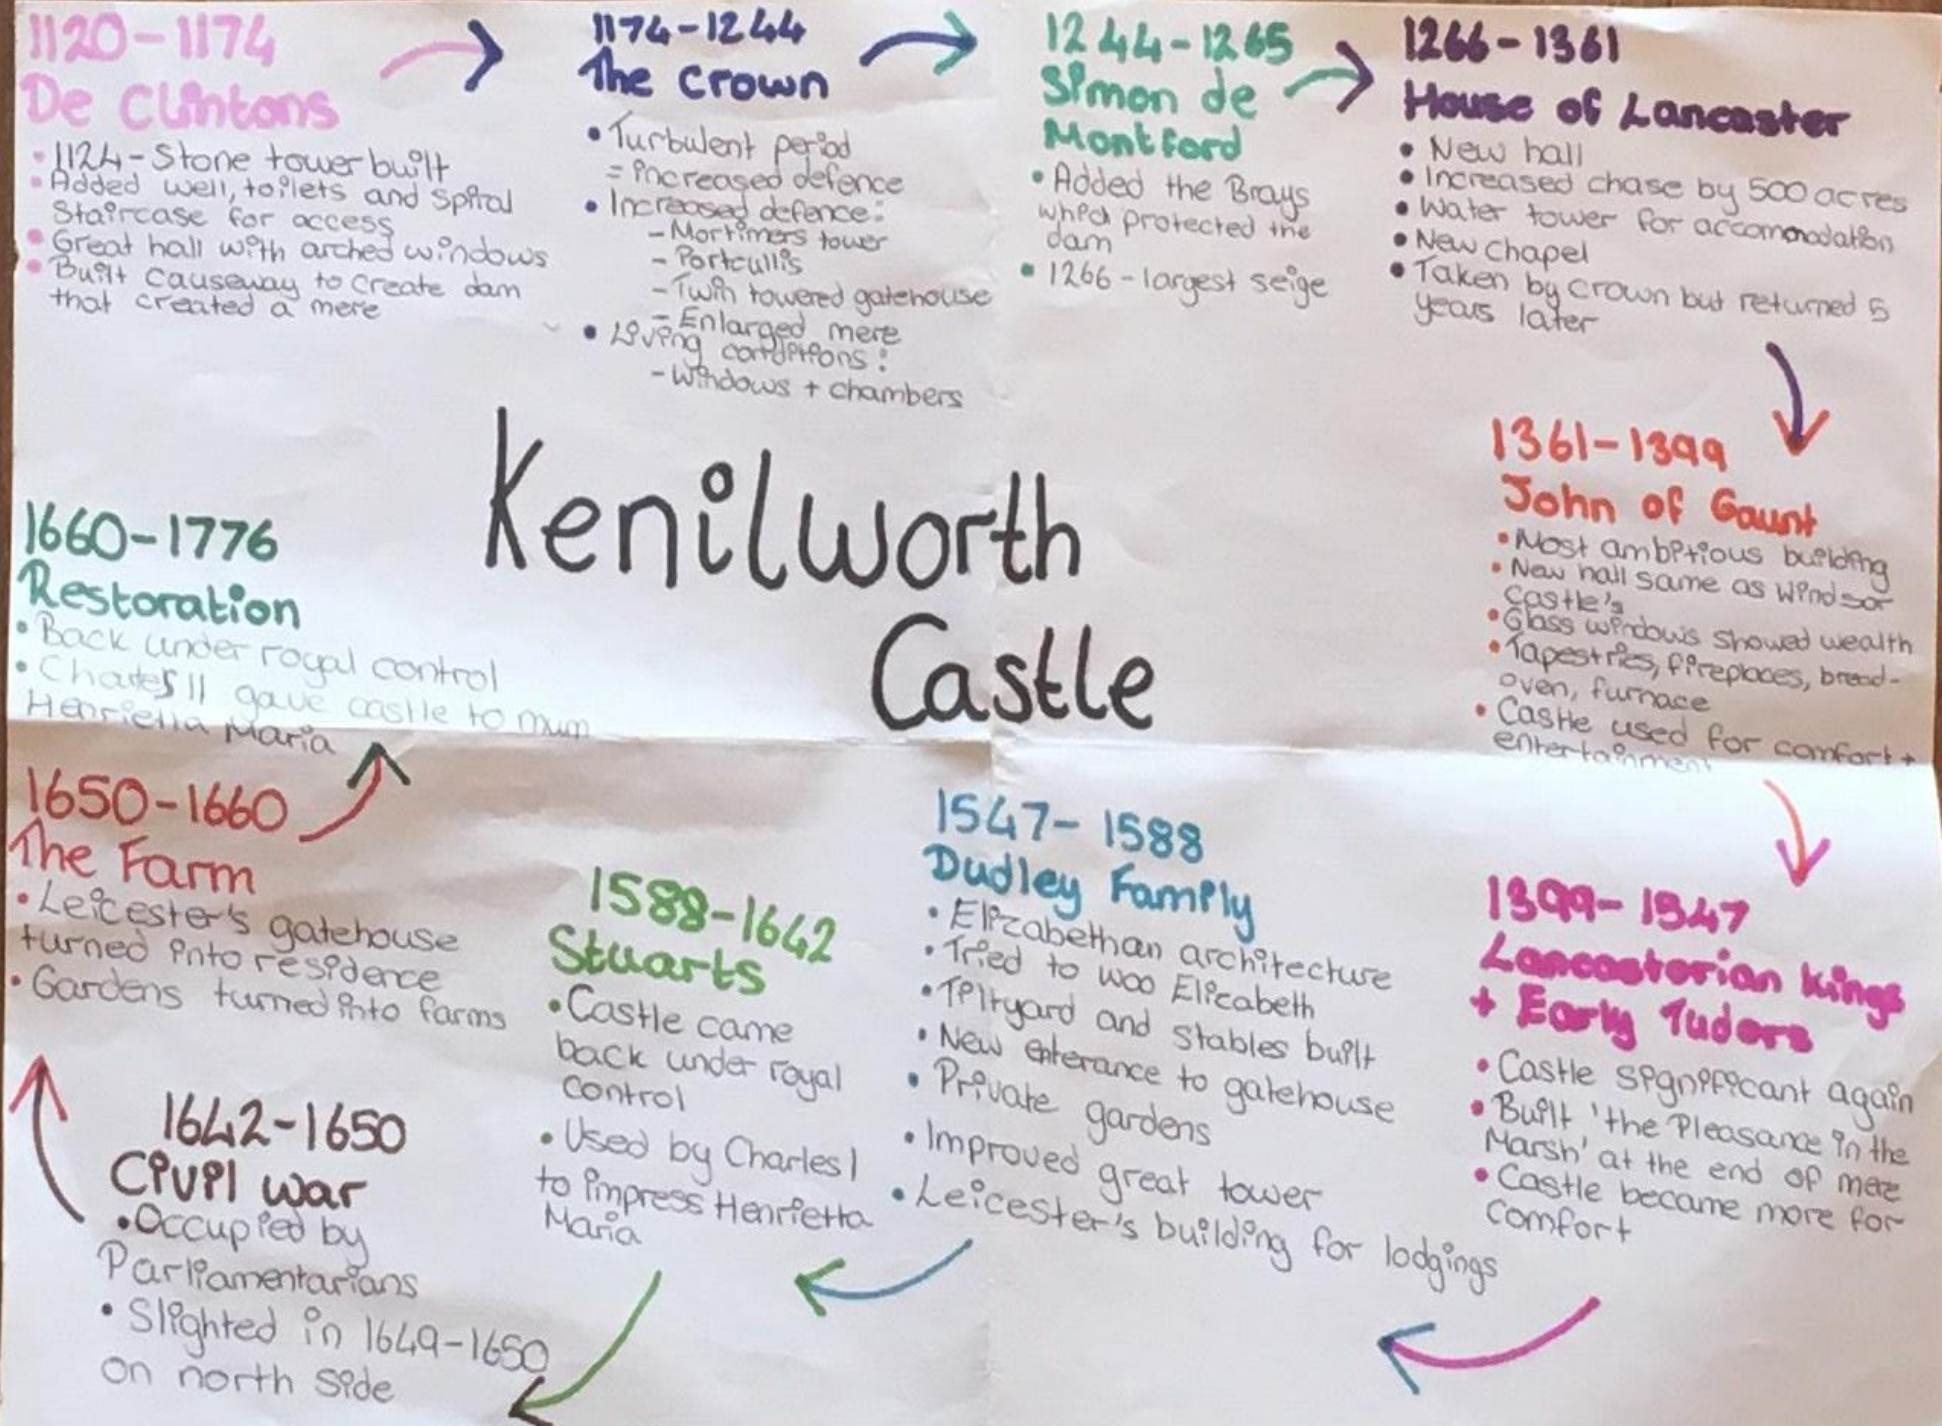 1120-1174
De Clintons
• 1124 - Stone tower built
• Added well, toilets and spiral
staircase for access
• Great hall with arched windows
• Built causeway to create dam
that created a mere
1174-1244
The Crown
• Turbulent period
= increased defence
• Increased defence:
- Mortimers tower
- Portcullis
- Twin towered gatehouse
- Enlarged mere
• Living conditions:
- Windows + chambers
1244-1265
Simon de
Montford
• Added the Brays
which protected the
dam
• 1266 - largest seige
1266-1361
House of Lancaster
• New hall
• Increased chase by 500 acres
• Water tower for accomodation
• New chapel
• Taken by crown but returned 5
years later
1361-1399
John of Gaunt
• Most ambitious building
• New hall same as Windsor
castle's
• Glass windows showed wealth
• Tapestries, fireplaces, bread-
oven, furnace
• Castle used for comfort +
entertainment
Kenilworth
Castle
1399-1547
Lancastorian Kings
+ Early Tudors
• Castle significant again
• Built 'the Pleasance in the
Marsh' at the end of mere
• Castle became more for
comfort
1547-1588
Dudley Family
• Elizabethan architecture
• Tried to woo Elizabeth
• Tiltyard and stables built
• New enterance to gatehouse
• Private gardens
• Improved great tower
• Leicester's building for lodgings
1588-1642
Stuarts
• Castle came
back under royal
control
• Used by Charles I
to impress Henrietta
Maria
1642-1650
Civil war
• Occupied by
Parliamentarians
• Slighted in 1649-1650
on north side
1650-1660
The Farm
• Leicester's gatehouse
turned into residence
• Gardens turned into farms
1660-1776
Restoration
• Back under royal control
• Charles II gave castle to mum
Henrietta Maria